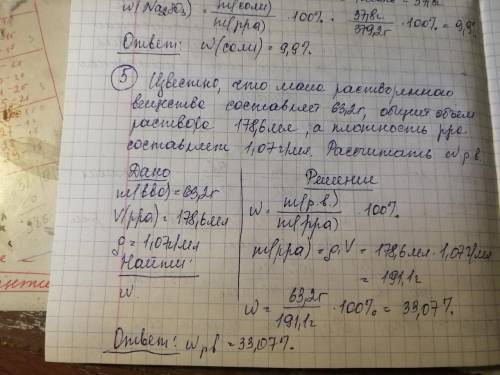 ω(Na₂CO₃) = m(соли) / m(рра) · 100% = 37,8г / 379,2г · 100% = 9,9%
Ответ: ω(соли) = 9,9%.
5 Известно, что масса растворенного
вещества составляет 63,2г, общий объем
раствора 178,6мл, а плотность рра
составляет 1,07г/мл. Рассчитать ω р.в.
Дано
m(вва) = 63,2г
V(рра) = 178,6мл
ρ = 1,07г/мл
Найти:
ω
Решение
ω = m(р.в.) / m(рра) · 100%
m(рра) = ρ·V = 178,6мл · 1,07г/мл
= 191,1г
ω = 63,2г / 191,1г · 100% = 33,07%
Ответ: ω рв = 33,07%.